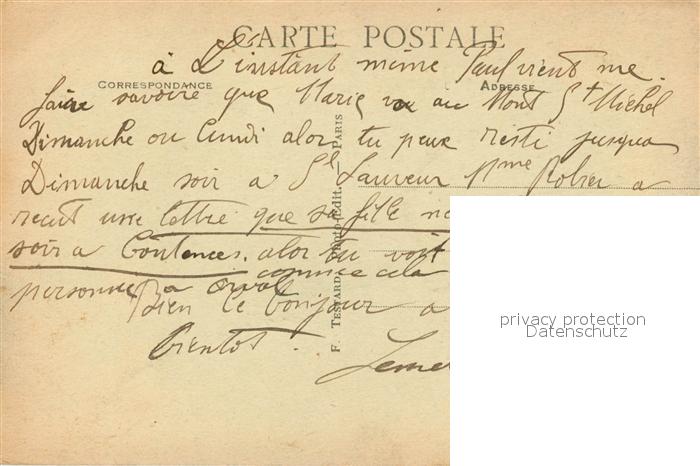 CARTE POSTALE
à L'instant même Paul vient me
CORRESPONDANCE
ADRESSE
faire savoire que Marie va au Mont St Michel
Dimanche ou Lundi alor tu peux resti jusqua
Dimanche soir a St Sauveur Mme a
recut une lettre que sa fille
soir a Coutences. alor tu voit
comme cela
personne a Orval
Bien le bonjour a
bientot.
F. TESTARD, Photo-Edit. — PARIS
privacy protection
Datenschutz